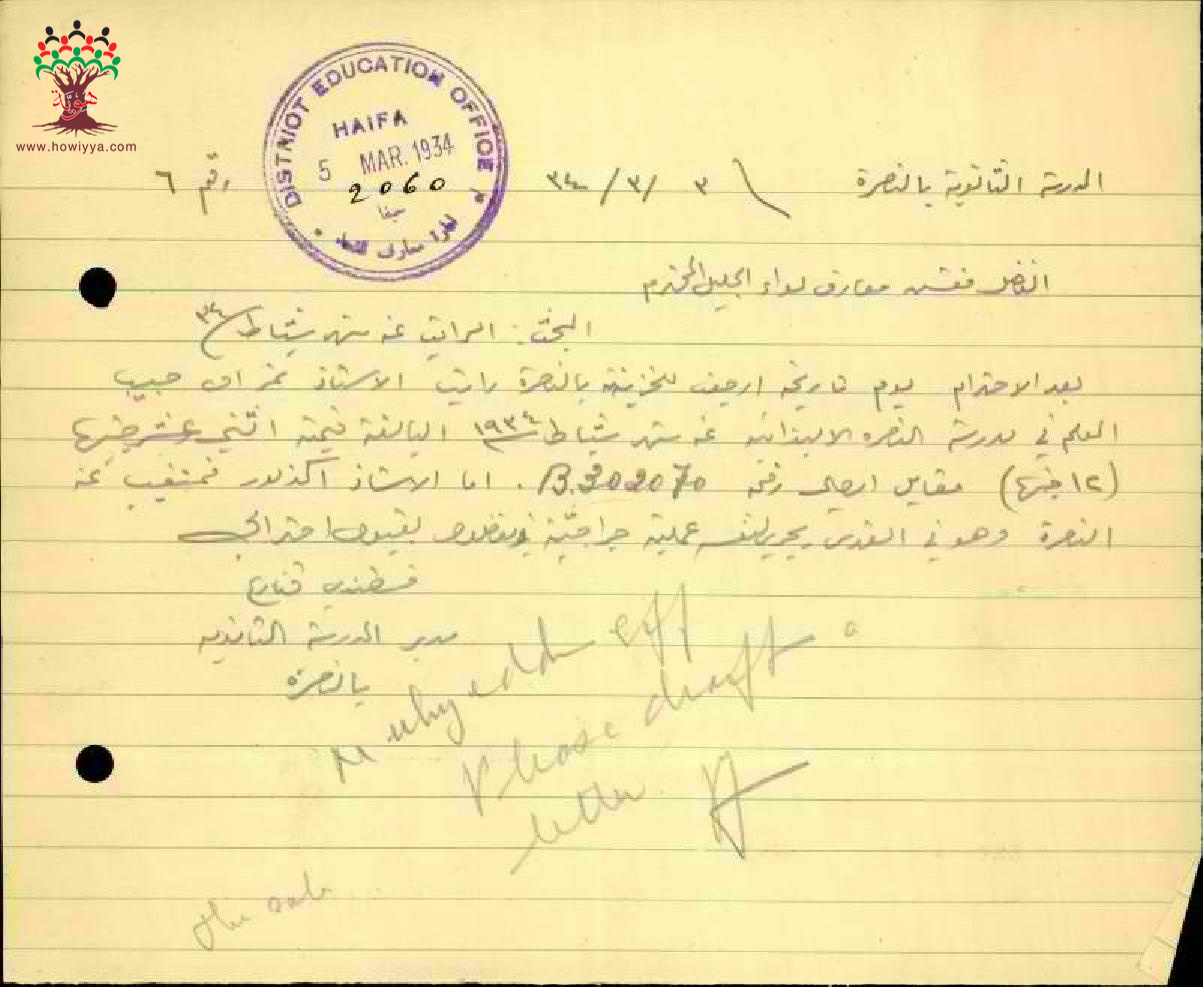 هوية
www.howiyya.com
DISTRICT EDUCATION OFFICE
HAIFA
5 MAR. 1934
2060
حيفا
المدرسة الثانوية بالناصرة ٣ /٣/ ٣٤ رقم ٦
مفتش معارف لواء الجليل المحترم
البحث: الراتب عن شهر شباط ٣٤
بعد الاحترام يوم تاريخه ارجعت للخزينة بالناصرة راتب الاستاذ حبيب
المعلم في مدرسة الناصرة الابتدائية عن شهر شباط ١٩٣٤ البالغة قيمته اثني عشر جنيها
(١٢ جنيها) مقابل ايصال رقم B.302070. اما الاستاذ المذكور فمتغيب عن
الناصرة وهو في القدس عملية جراحية وتفضلوا بقبول احترامي
قسطندي قنازع
مدير المدرسة الثانوية
بالناصرة
Muhyeddin eff
Please draft a
letter